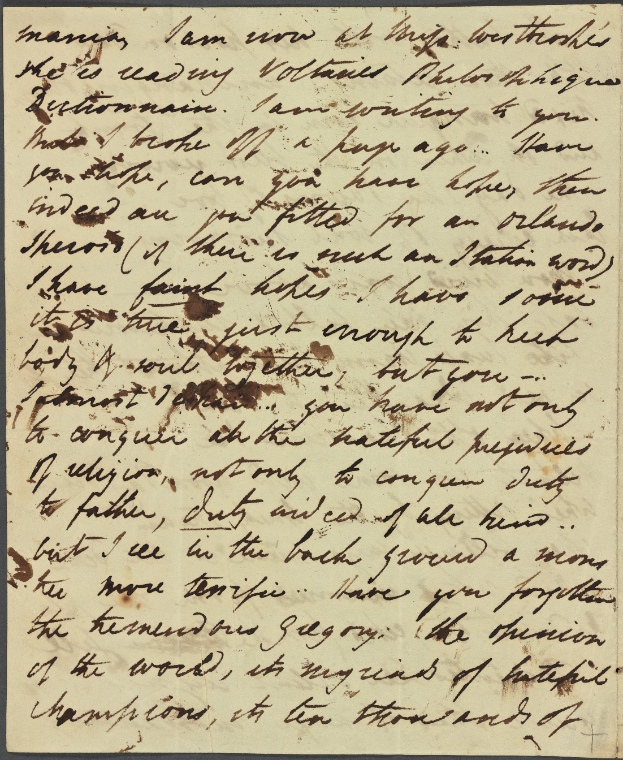 mania, I am now at Miss Westbrooke's
she is reading Voltaires Philosophique
Dictionnaire. I am writing to you.
I broke off a page ago .. Have
you hope, can you have hope, then
indeed are you fitted for an Orlando
(if there is such an Italian word)
I have faint hopes I have some
it is true, just enough to keep
body & soul together, but you —..
I almost .. you have not only
to conquer all the hateful prejudices
of religion, not only to conquer duty
to father, duty indeed of all kind ..
but I see in the back ground a mons
ter more terrific .. Have you forgotten
the tremendous Gregory. the opinion
of the world, its myriads of hateful
champions, its ten thousands of